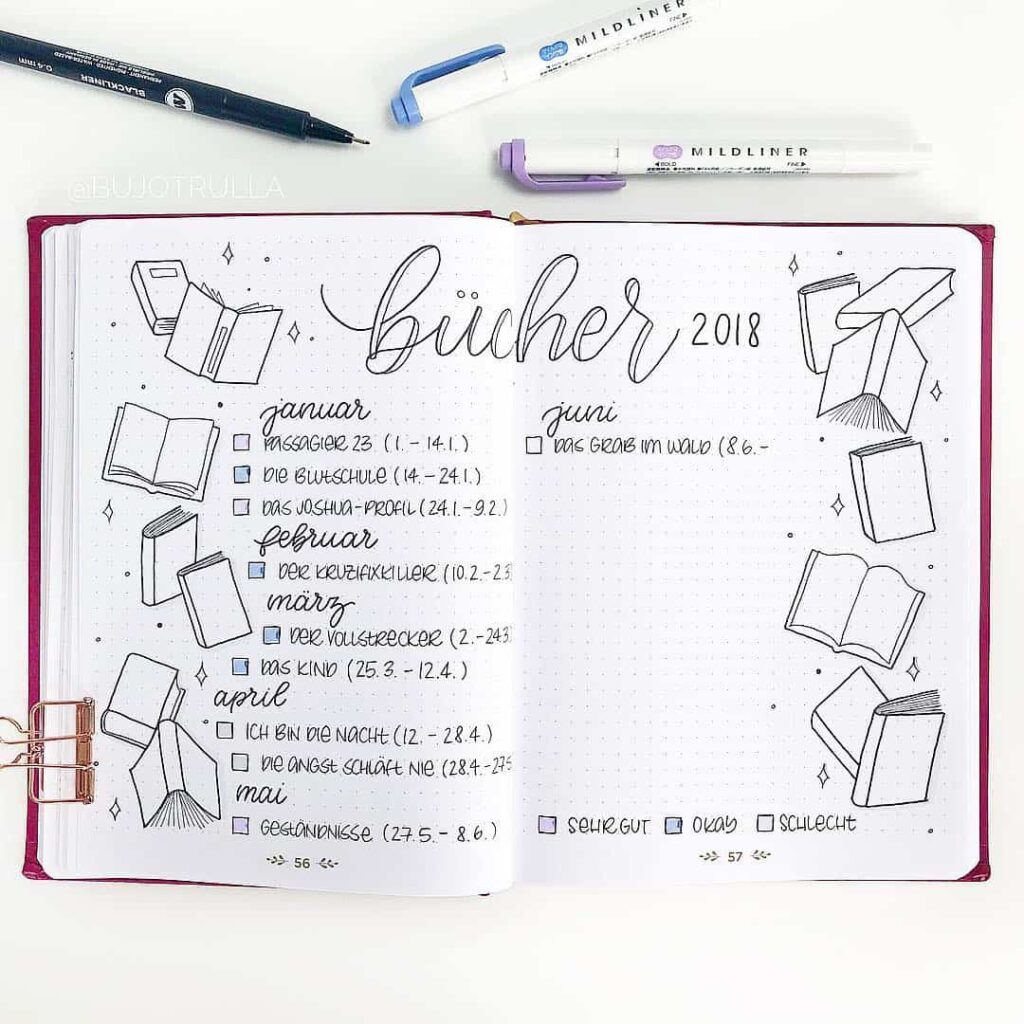 BLACKLINER
0.4 mm
MILDLINER
MILDLINER
BOLD
FINE
@BUJOTRULLA
bücher 2018
januar
PASSAGIER 23 (1. - 14.1.)
DIE BLUTSCHULE (14. - 24.1.)
DAS JOSHUA-PROFIL (24.1. - 9.2.)
februar
DER KRUZIFIXKILLER (10.2. - 2.3
märz
DER VOLLSTRECKER (2. - 24.3.
DAS KIND (25.3. - 12.4.)
april
ICH BIN DIE NACHT (12. - 28.4.)
DIE ANGST SCHLÄFT NIE (28.4. - 27.5
mai
GESTÄNDNISSE (27.5. - 8.6.)
56
juni
DAS GRAB IM WALD (8.6. -
SEHR GUT OKAY SCHLECHT
57